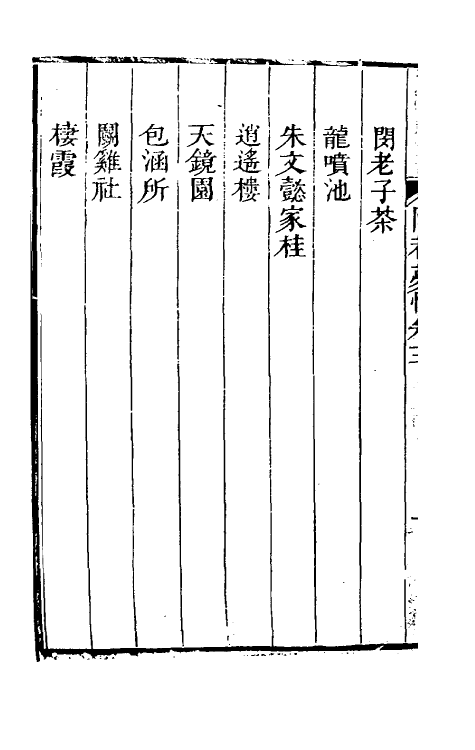 閔老子茶
龍噴池
朱文懿家桂
逍遙樓
天鏡園
包涵所
鬭雞社
棲霞